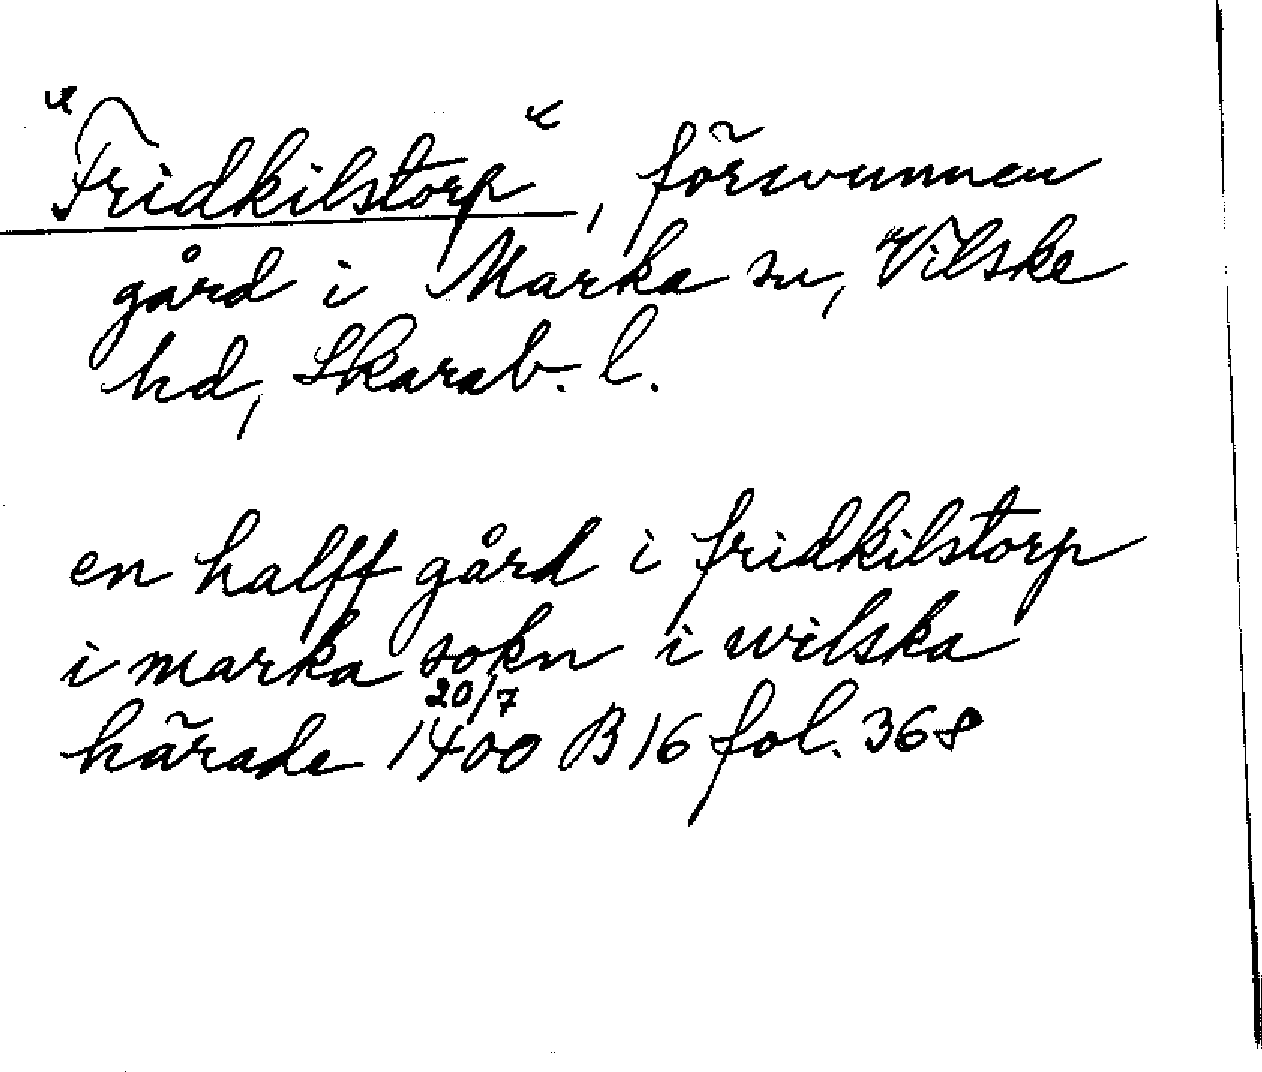 "Fridkilstorp", försvunnen
gård i Marka sn, Vilske
hd, Skarab. l.
en halff gård i fridkilstorp
i marka sokn i wilska
härade 20/7 1400 B 16 fol. 368